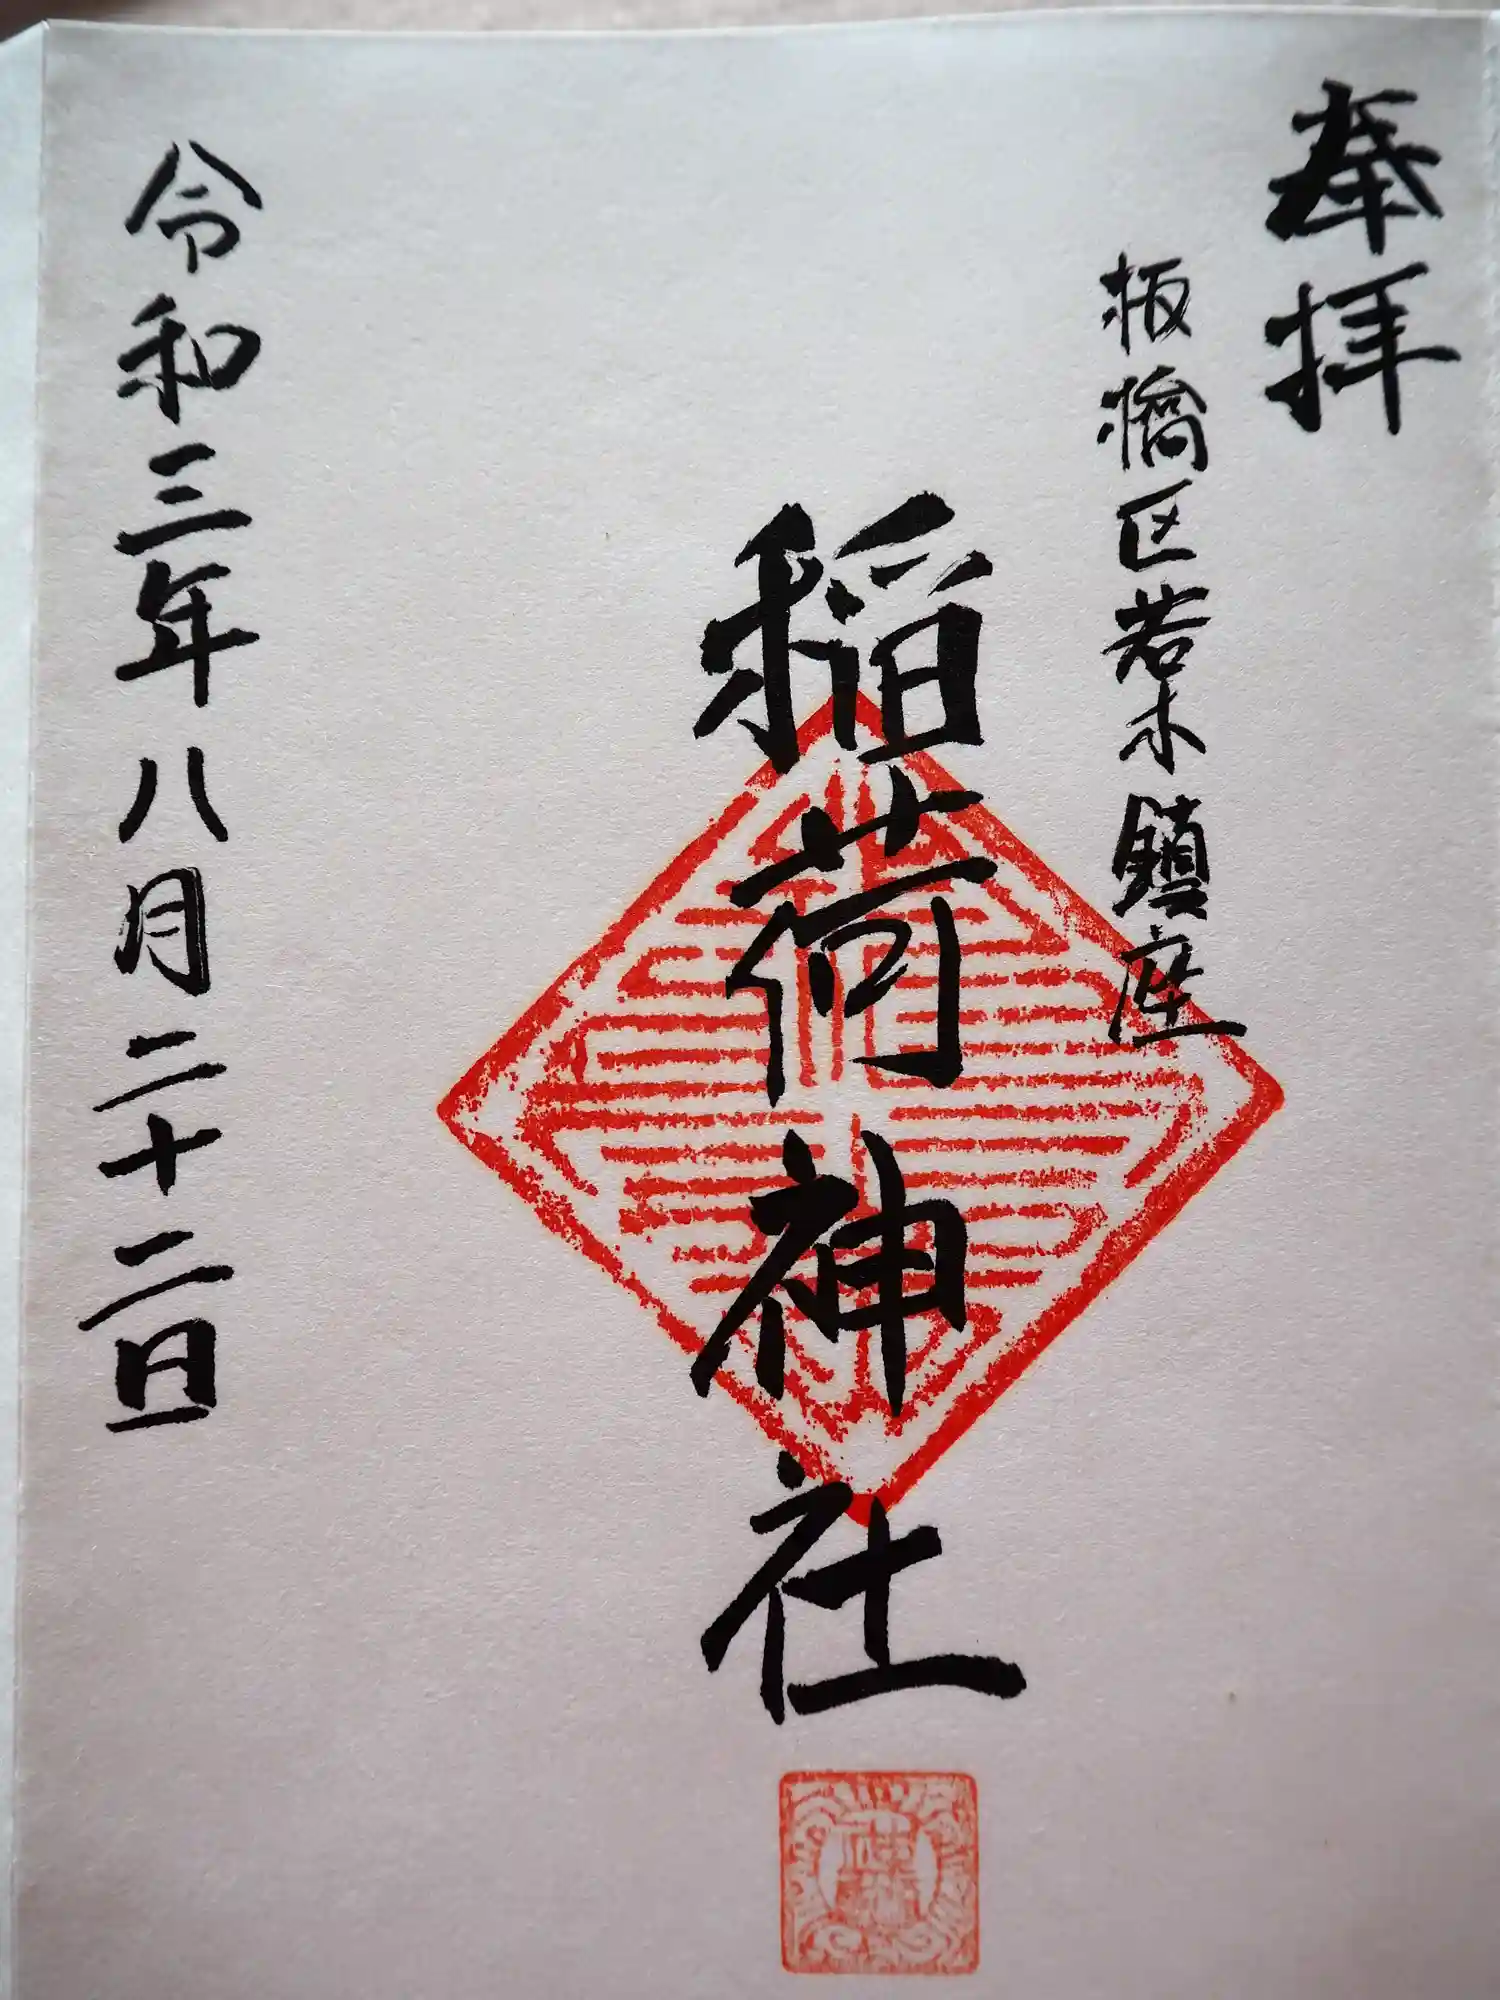 奉拝
板橋区若木鎮座
稲荷神社
令和三年八月二十二日